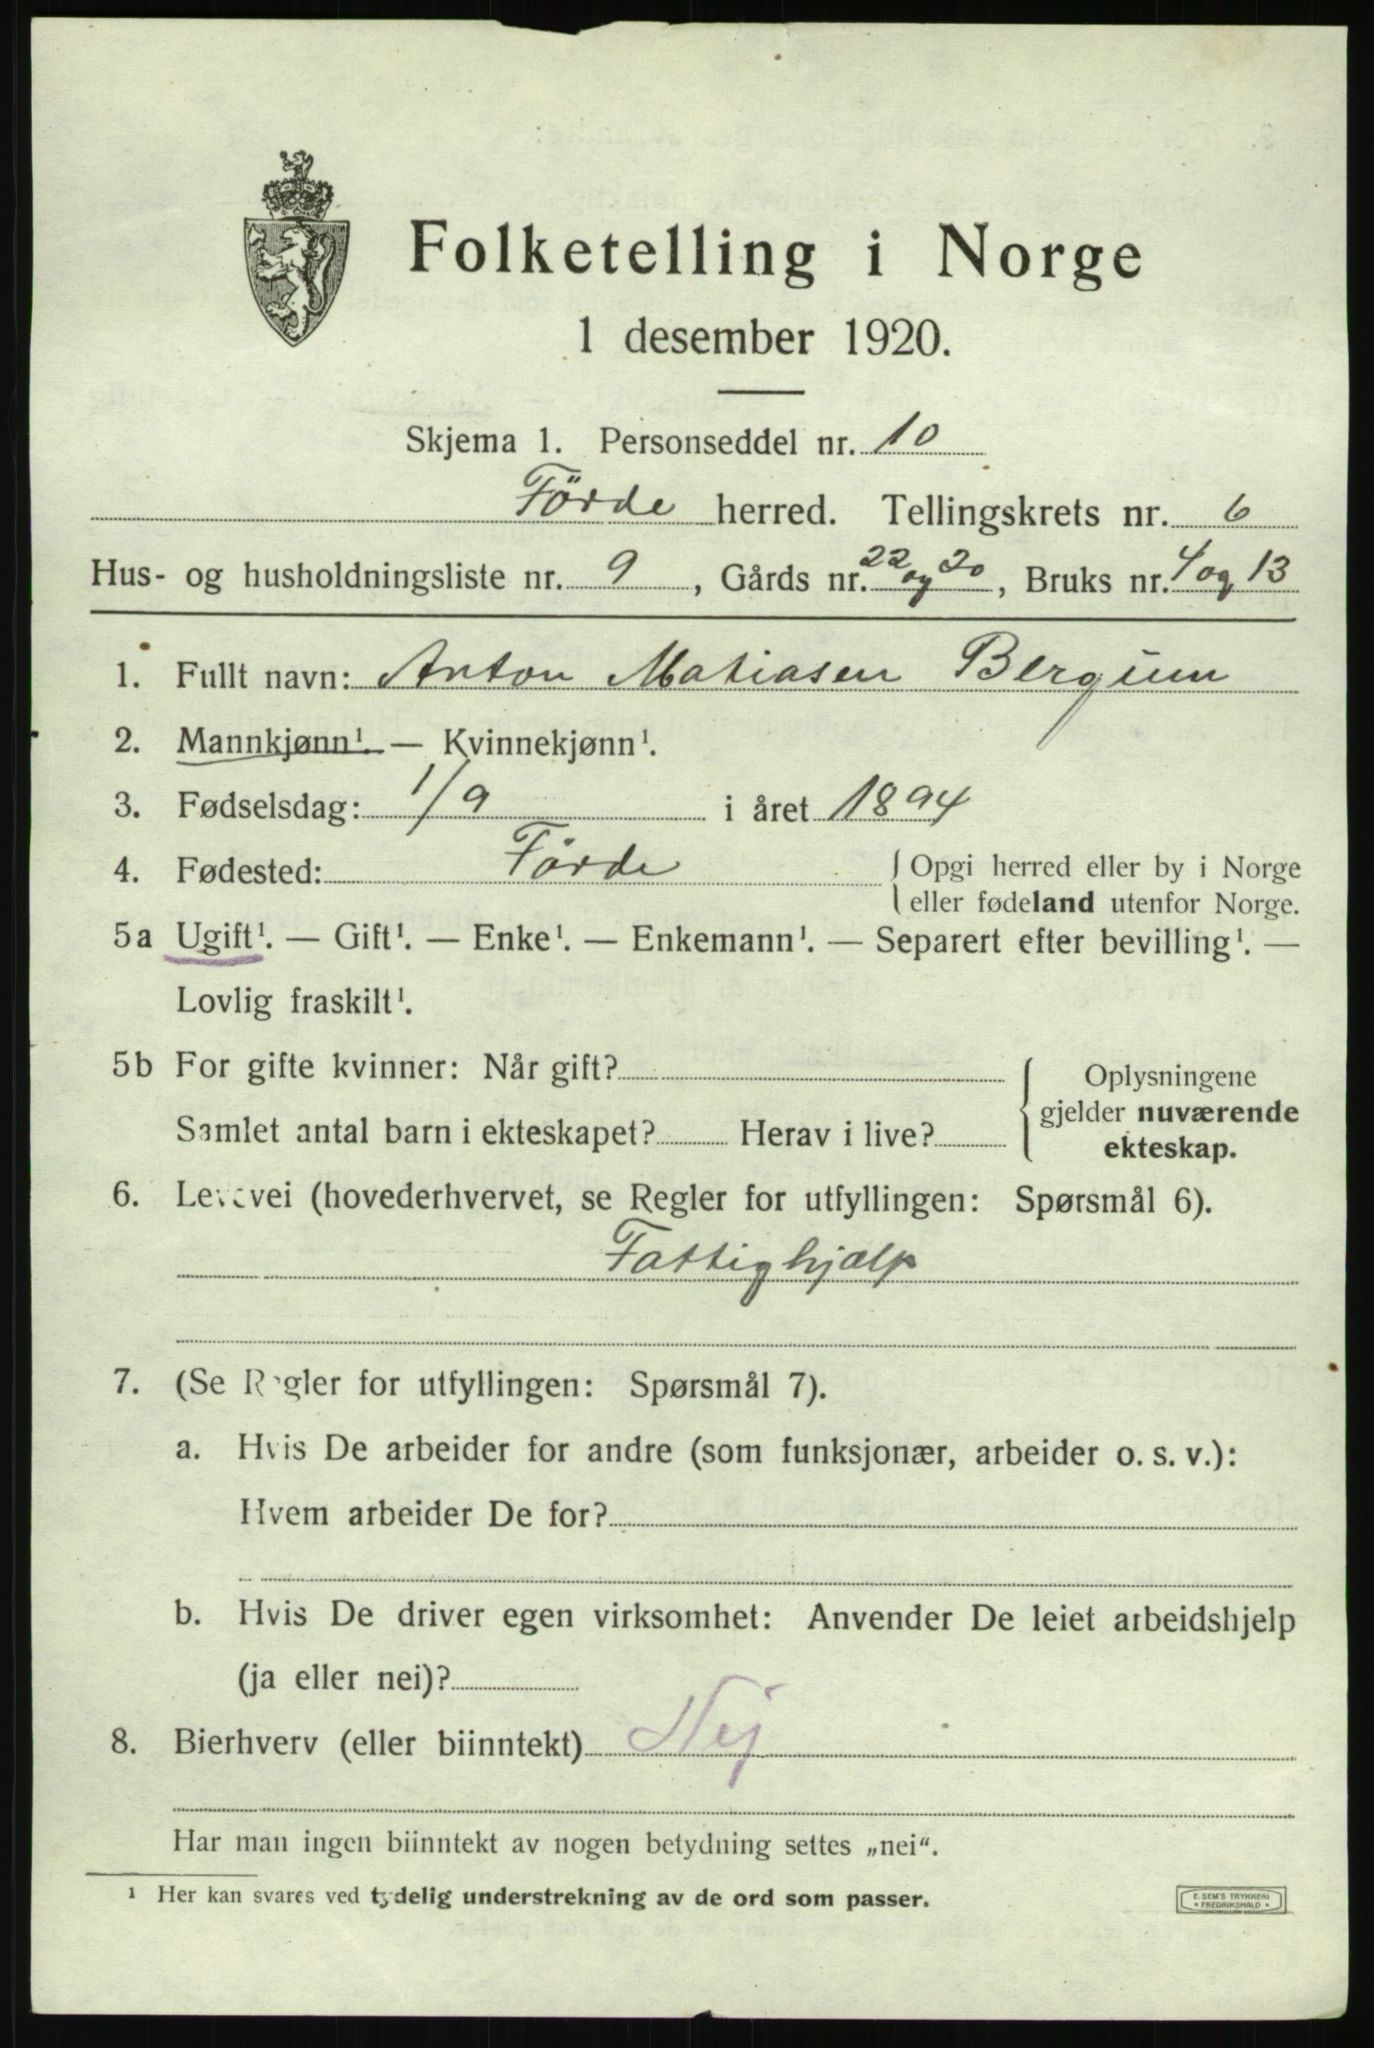 Folketelling i Norge
1 desember 1920.
Skjema 1. Personseddel nr. 10
Förde herred. Tellingskrets nr. 6
Hus- og husholdningsliste nr. 9, Gårds nr. 22 og 20, Bruks nr. 4 og 13
1. Fullt navn: Anton Matiasen Bergum
2. Mannkjønn¹. — Kvinnekjønn¹.
3. Fødselsdag: 1/9 i året 1894
4. Fødested: Förde { Opgi herred eller by i Norge
eller fødeland utenfor Norge.
5a Ugift¹. — Gift¹. — Enke¹. — Enkemann¹. — Separert efter bevilling¹. —
Lovlig fraskilt¹.
5b For gifte kvinner: Når gift? { Oplysningene
gjelder nuværende
Samlet antal barn i ekteskapet? Herav i live? ekteskap.
6. Levevei (hovederhvervet, se Regler for utfyllingen: Spørsmål 6).
Fattighjælp
7. (Se Regler for utfyllingen: Spørsmål 7).
a. Hvis De arbeider for andre (som funksjonær, arbeider o. s. v.):
Hvem arbeider De for?
b. Hvis De driver egen virksomhet: Anvender De leiet arbeidshjelp
(ja eller nei)?
8. Bierhverv (eller biinntekt) Nej
Har man ingen biinntekt av nogen betydning settes „nei“.
¹ Her kan svares ved tydelig understrekning av de ord som passer.
E. SEM'S TRYKKERI
• FREDRIKSHALD •